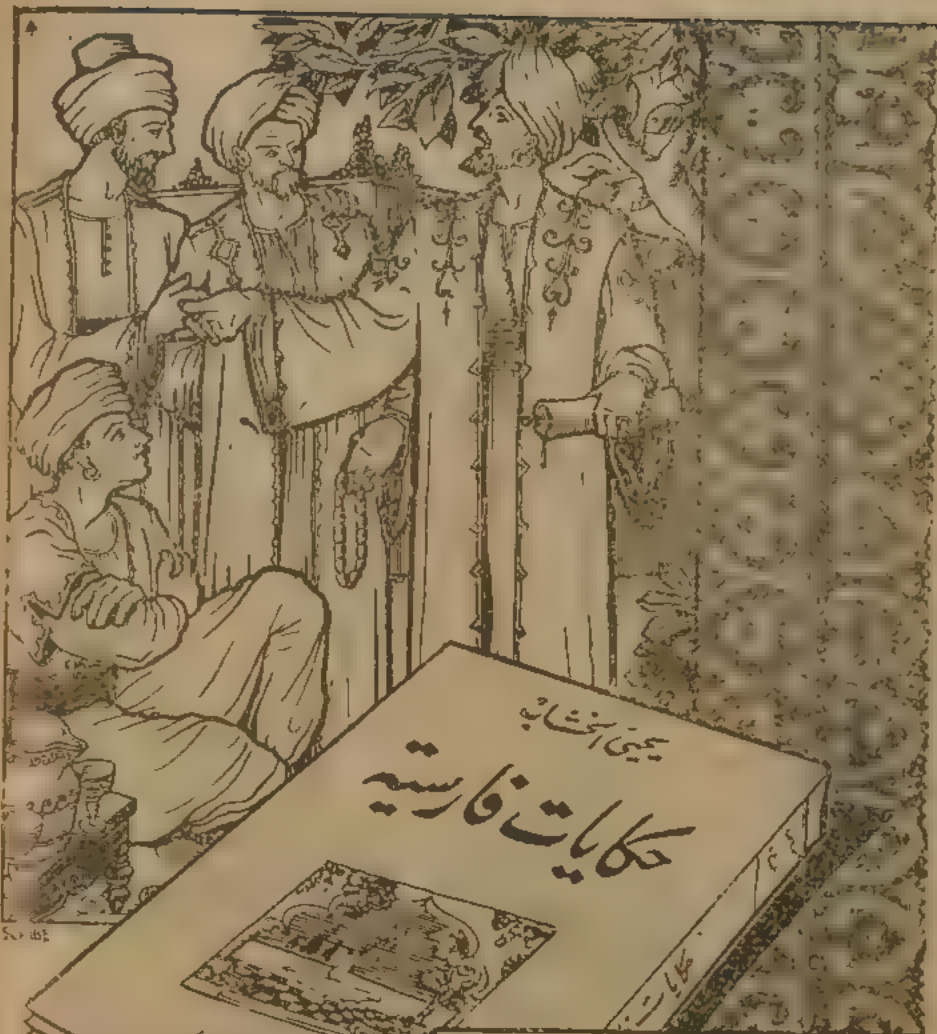 يحيى الخشاب
حكايات فارسية
حكايات